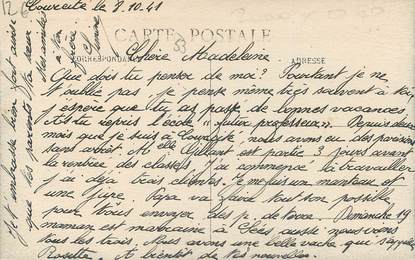 le 8.10.41
CARTE POSTALE
53
CORRESPONDANCE
ADRESSE
Chère Madeleine
Que dois tu penser de moi? Pourtant je ne
t'oublie pas je pense même très souvent à toi
j'espère que tu as passé de bonnes vacances
As tu repris l'école "futur professeur". Depuis deux
mois que je suis à nous avons eu des parisiens
sans arrêt. Melle est partie 3 jours avant
la rentrée des classes. J'ai commencé à travailler
j'ai déjà trois clientes. Je me suis un manteau et
une jupe. Papa va faire tout son possible
pour vous envoyer des p. de terre. Dimanche 19
maman est marraine à Sées aussi nous irons
tous les trois. Nous avons une belle vache qui s'appelle
Rosette. A bientôt de tes nouvelles.
Je t'embrasse bien fort ainsi
que tes parents et ta sœur